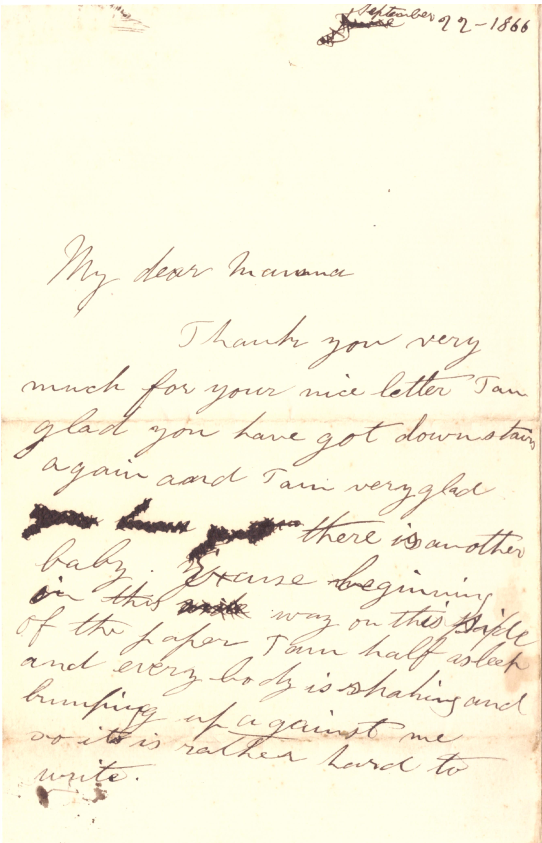 September 22-1866
My dear Mamma
Thank you very
much for your nice letter I am
glad you have got down stairs
again aand I am very glad
there is another
baby. Excuse beginning
in this way on this side
of the paper I am half asleep
and every body is shaking and
bumping up against me
so it is rather hard to
write.